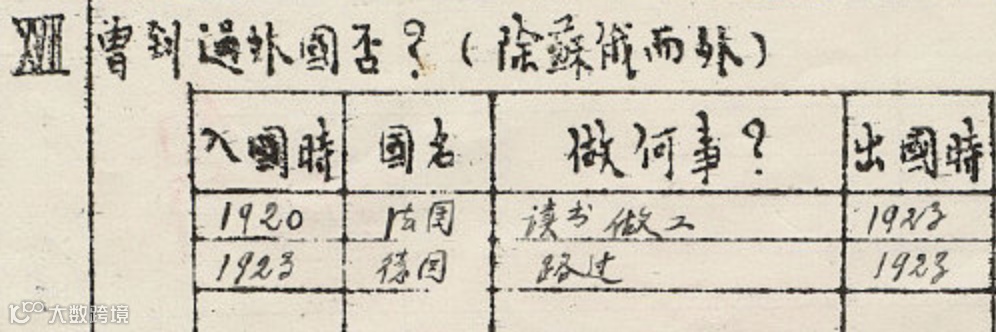 XVII 曾到過外國否？（除蘇俄而外）
入國時 國名 做何事？ 出國時
1920 法国 读书做工 1923
1923 德国 路过 1923
大数跨境